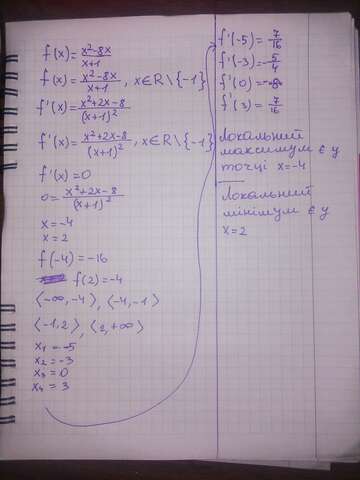 f(x)=\frac{x²-8x}{x+1}
f(x)=\frac{x²-8x}{x+1}, x∈R\{-1}
f'(x)=\frac{x²+2x-8}{(x+1)²}
f'(x)=\frac{x²+2x-8}{(x+1)²}, x∈R\{-1}
f'(x)=0
0=\frac{x²+2x-8}{(x+1)²}
x=-4
x=2
f(-4)=-16
f(2)=-4
⟨-∞,-4⟩, ⟨-4,-1⟩
⟨-1,2⟩, ⟨2,+∞⟩
x₁=-5
x₂=-3
x₃=0
x₄=3
f'(-5)=\frac{7}{16}
f'(-3)=-\frac{5}{4}
f'(0)=-8
f'(3)=\frac{7}{16}
Локальний
максимум є у
точці x=-4
Локальний
мінімум є у
x=2